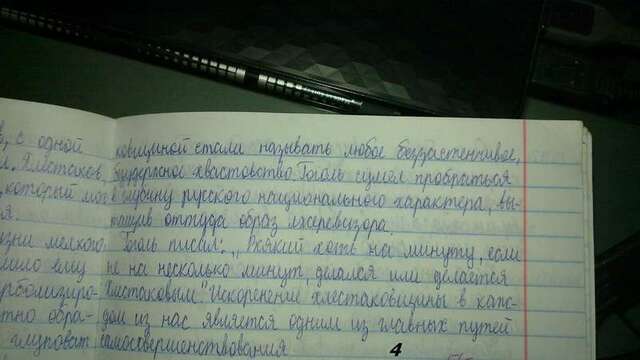 в, с одной
и. Хлестаков,
который мог
ия.
изни мелкого
было ему
ерболизиро-
тно обра-
глуповат
ковщиной стали называть любое беззастенчивое,
безудержное хвастовство. Гоголь сумел пробраться
в глубину русского национального характера, вы-
тащив оттуда образ лжеревизора.
Гоголь писал: „Всякий хоть на минуту, если
не на несколько минут, делался или делается
Хлестаковым". Искоренение хлестаковщины в каж-
дом из нас является одним из главных путей
самосовершенствования.
4